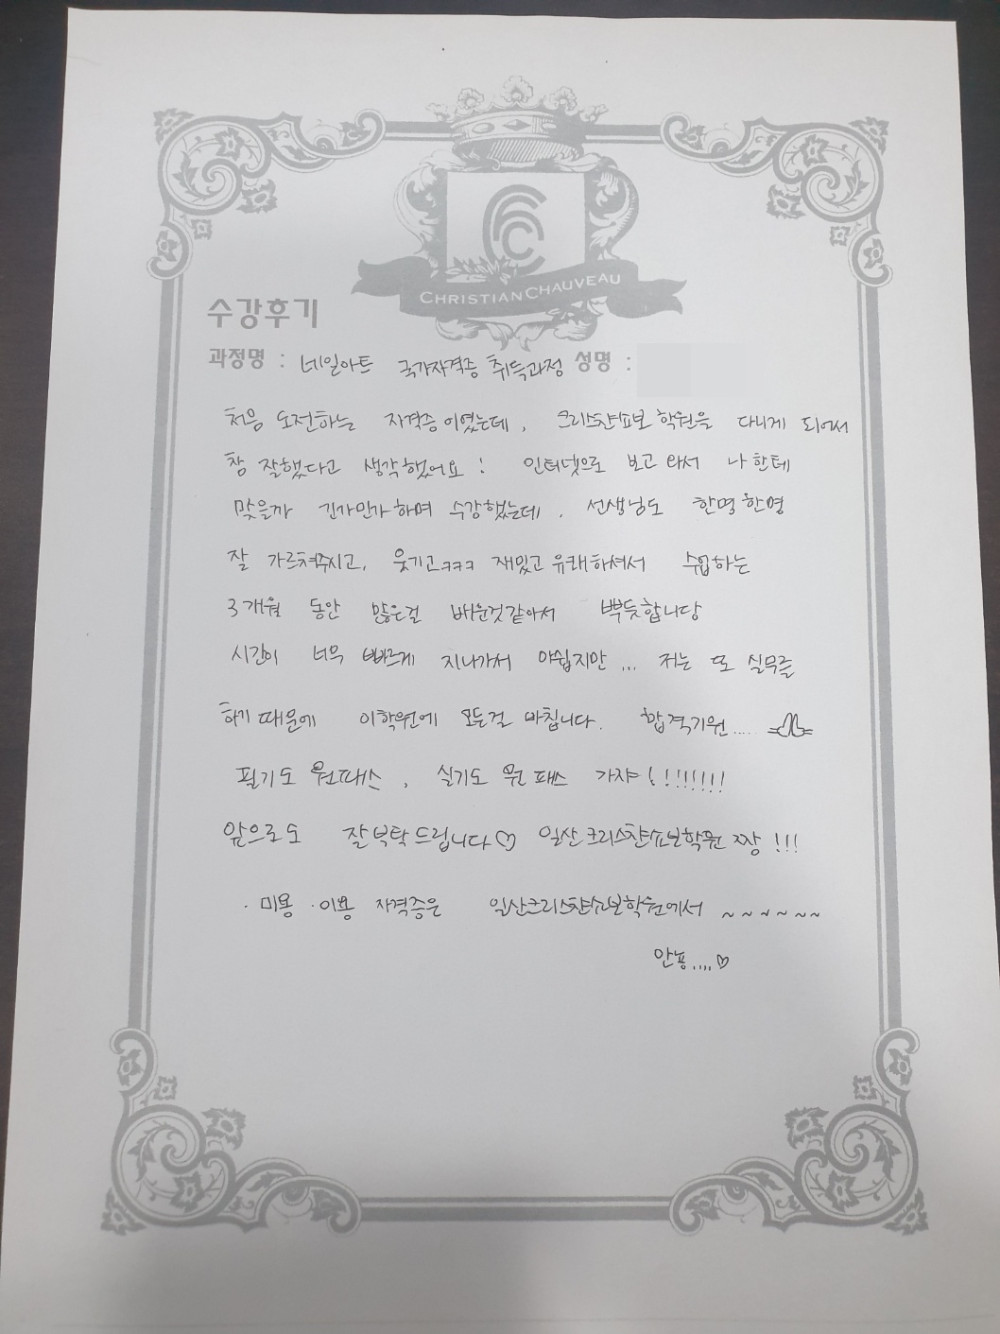 CHRISTIAN CHAUVEAU
수강후기
과정명 : 네일아트 국가자격증 취득과정 성명 :
처음 도전하는 자격증이였는데, 크리스챤쇼보 학원을 다니게 되어서
참 잘했다고 생각했어요! 인터넷으로 보고 와서 나한테
맞을까 긴가민가하며 수강했는데, 선생님도 한명한명
잘 가르쳐주시고, 웃기고ㅋㅋㅋ 재밌고 유쾌하셔서 수업하는
3개월 동안 많은걸 배운것같아서 뿌듯합니당
시간이 너무 빠르게 지나가서 아쉽지만... 저는 또 실무를
하기 때문에 이학원에 모든걸 바칩니다. 합격기원....
필기도 원패스, 실기도 원패스 가쟈!!!!!!!!
앞으로도 잘부탁드립니다♡ 일산크리스챤쇼보학원 짱!!!
·미용·이용 자격증은 일산크리스챤쇼보학원에서 ~~~~~~
안뇽....♡